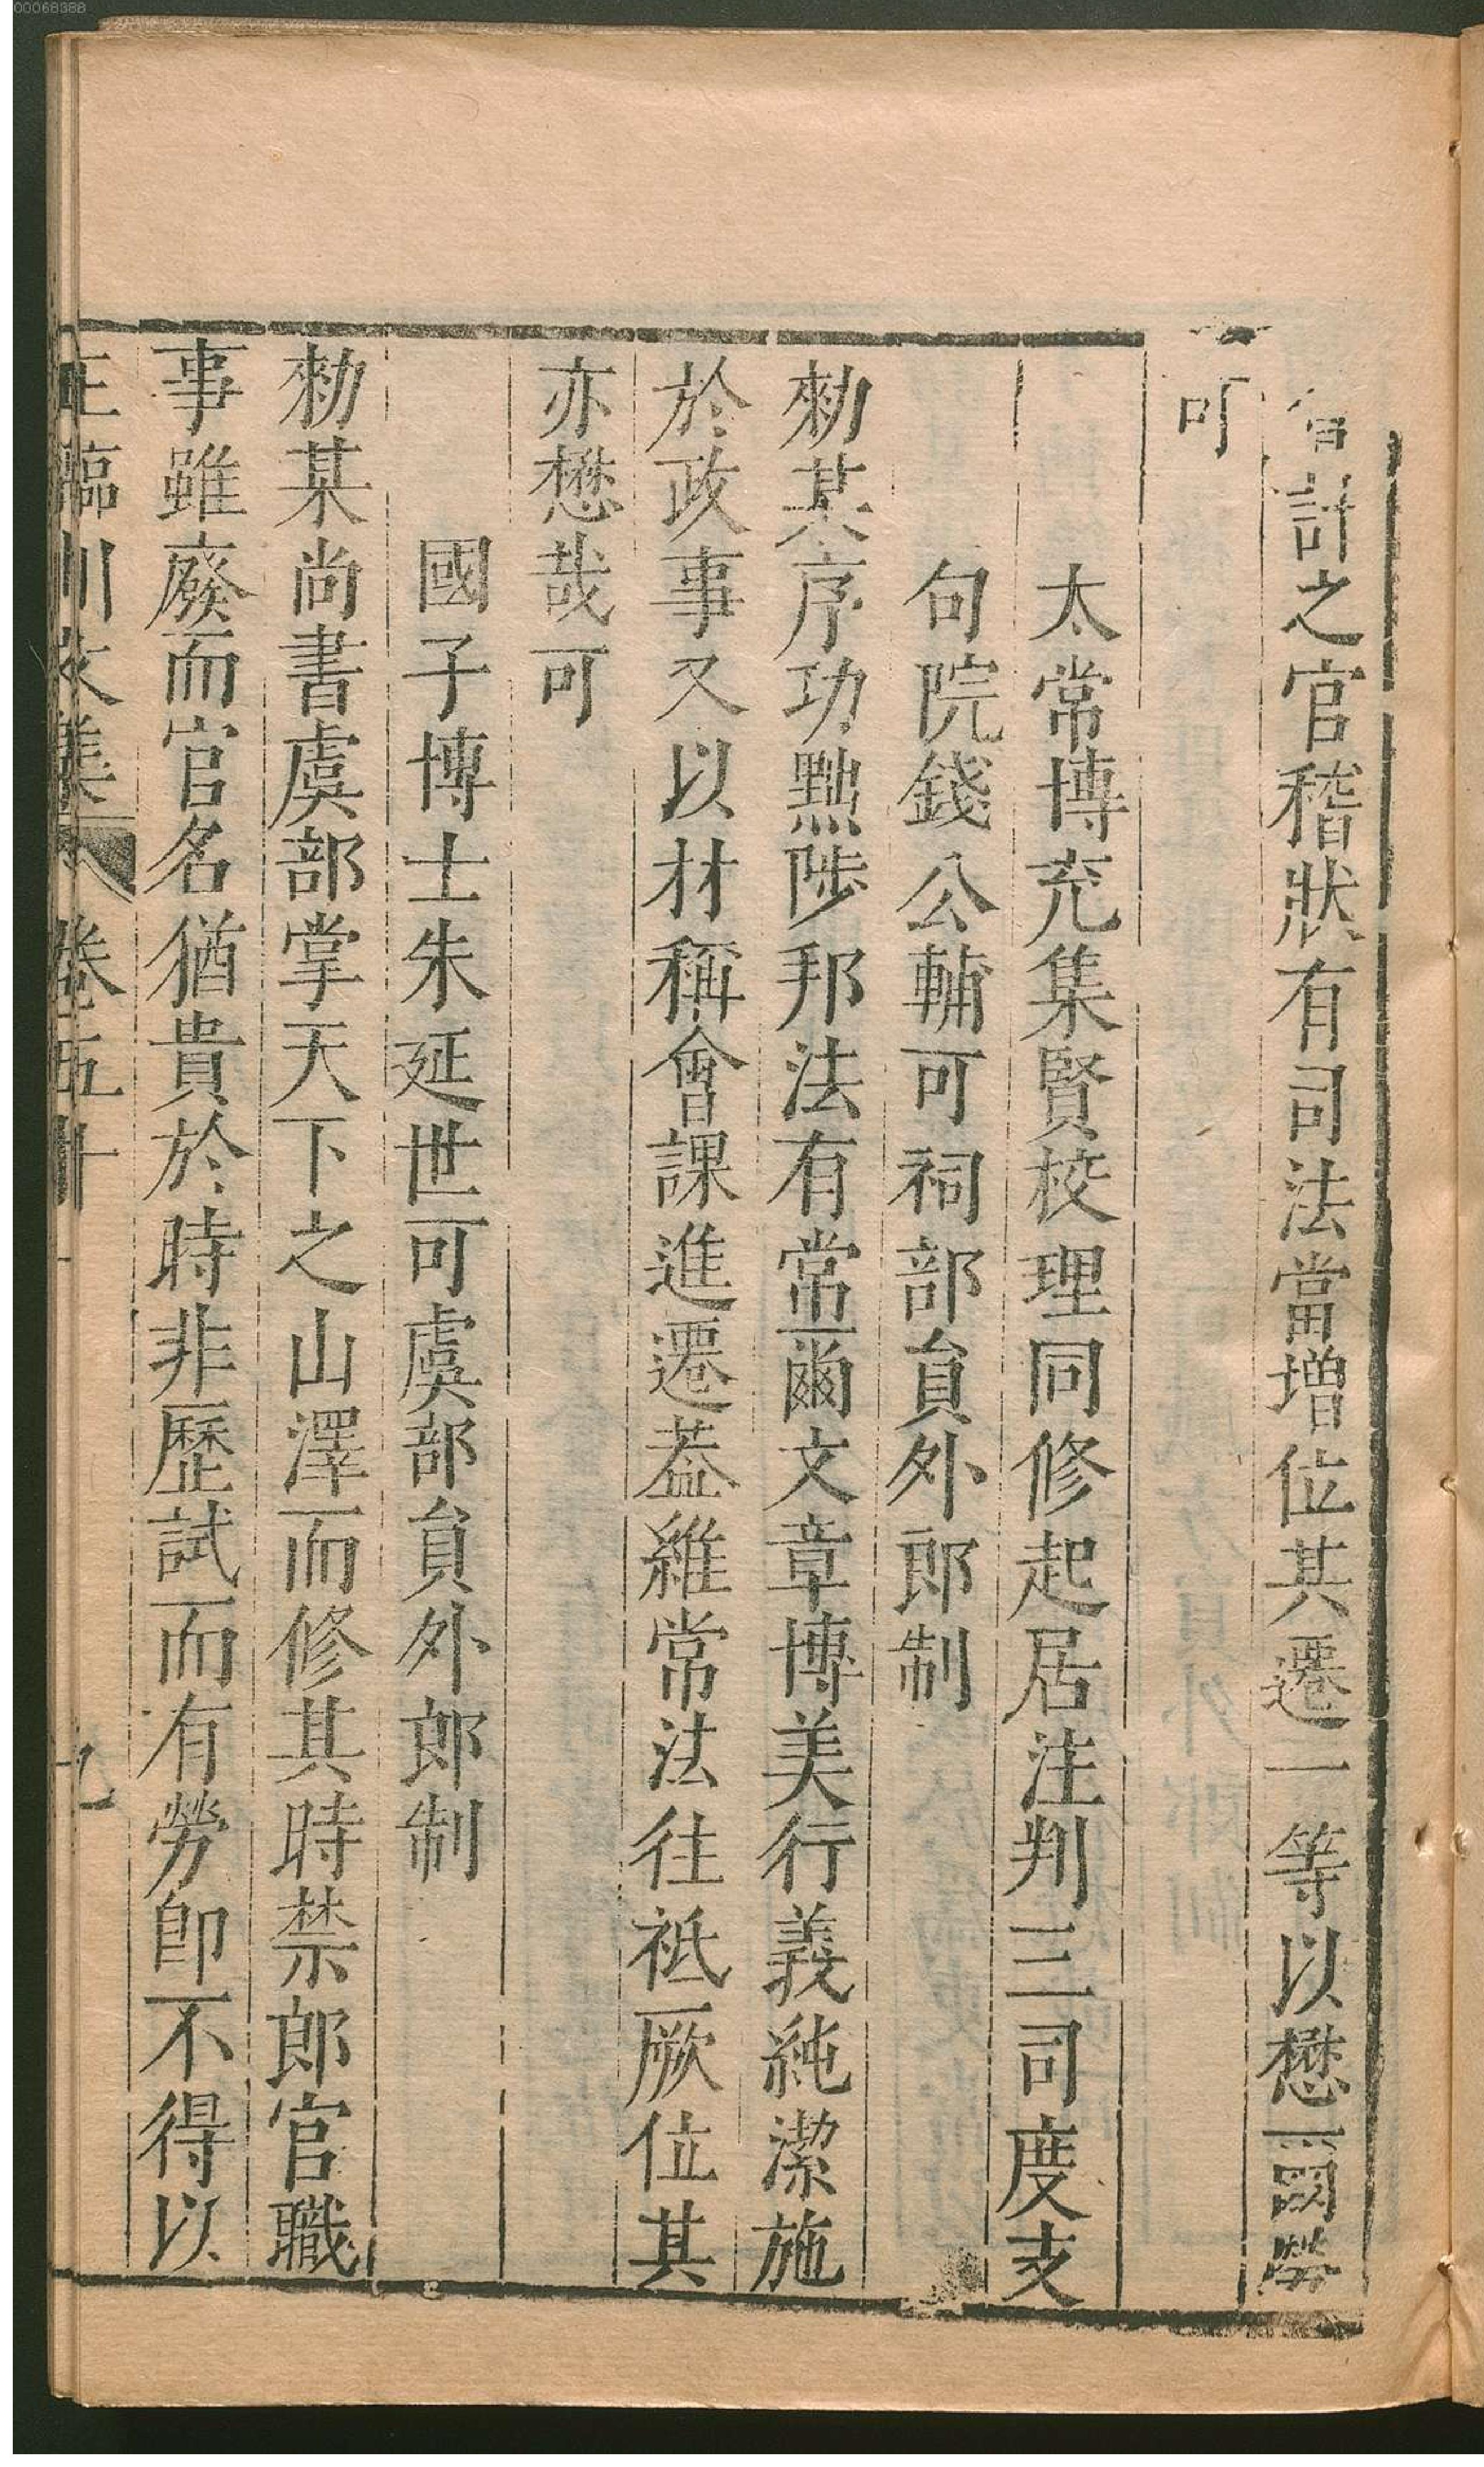 計之官稽狀有司法當增位其遷一等以懋爾勞
可
太常博充集賢校理同修起居注判三司度支
句院錢公輔可祠部員外郎制
勑某序功黜陟邦法有常爾文章博美行義純潔施
於政事又以材稱會課進遷葢維常法往祗厥位其
亦懋哉可
國子博士朱延世可虞部員外郎制
勑某尚書虞部掌天下之山澤而修其時禁郎官職
事雖廢而官名猶貴於時非歷試而有勞卽不得以
王臨川文集 卷五十 九
00068388